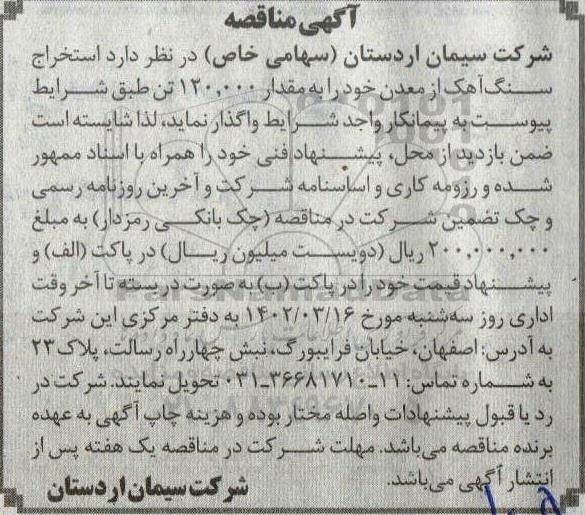 آگهی مناقصه
شرکت سیمان اردستان (سهامی خاص) در نظر دارد استخراج
سنگ آهک از معدن خود را به مقدار ۱۲۰,۰۰۰ تن طبق شرایط
پیوست به پیمانکار واجد شرایط واگذار نماید، لذا شایسته است
ضمن بازدید از محل، پیشنهاد فنی خود را همراه با اسناد ممهور
شده و رزومه کاری و اساسنامه شرکت و آخرین روزنامه رسمی
و چک تضمین شرکت در مناقصه (چک بانکی رمزدار) به مبلغ
۲۰۰,۰۰۰,۰۰۰ ریال (دویست میلیون ریال) در پاکت (الف) و
پیشنهاد قیمت خود را در پاکت (ب) به صورت دربسته تا آخر وقت
اداری روز سه‌شنبه مورخ ۱۴۰۲/۰۳/۱۶ به دفتر مرکزی این شرکت
به آدرس: اصفهان، خیابان فرایبورگ، نبش چهارراه رسالت، پلاک ۲۳
به شماره تماس: ۱۱-۳۶۶۸۱۷۱۰-۰۳۱ تحویل نمایند. شرکت در
رد یا قبول پیشنهادات واصله مختار بوده و هزینه چاپ آگهی به عهده
برنده مناقصه می‌باشد. مهلت شرکت در مناقصه یک هفته پس از
انتشار آگهی می‌باشد.
شرکت سیمان اردستان
ParsNamadData